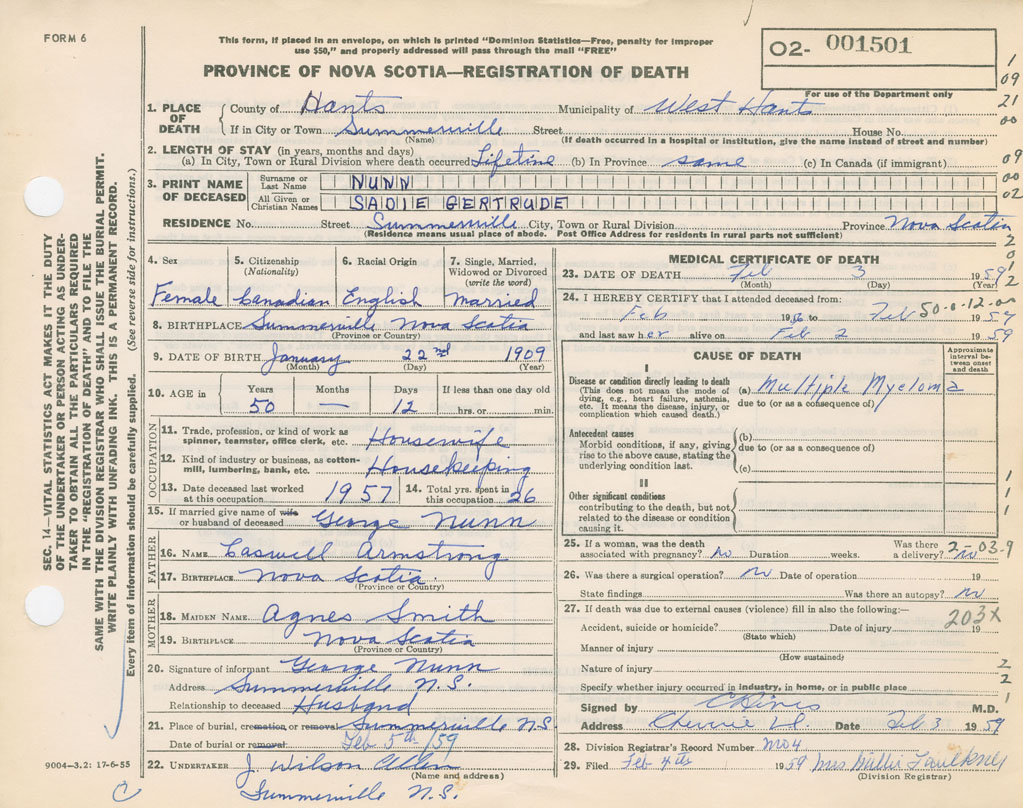 FORM 6
This form, if placed in an envelope, on which is printed "Dominion Statistics—Free, penalty for improper
use $50," and properly addressed will pass through the mail "FREE"
O2- 001501
For use of the Department only
PROVINCE OF NOVA SCOTIA—REGISTRATION OF DEATH
1. PLACE OF DEATH County of Hants Municipality of West Hants
If in City or Town Summerville Street House No.
(Name) (If death occurred in a hospital or institution, give the name instead of street and number)
2. LENGTH OF STAY (in years, months and days)
(a) In City, Town or Rural Division where death occurred Lifetime (b) In Province same (c) In Canada (if immigrant)
3. PRINT NAME OF DECEASED Surname or Last Name NUNN
All Given or Christian Names SADIE GERTRUDE
RESIDENCE No. Street Summerville City, Town or Rural Division Province Nova Scotia
(Residence means usual place of abode. Post Office Address for residents in rural parts not sufficient)
4. Sex 5. Citizenship (Nationality) 6. Racial Origin 7. Single, Married, Widowed or Divorced (write the word)
Female Canadian English Married
8. BIRTHPLACE Summerville Nova Scotia
(Province or Country)
9. DATE OF BIRTH January 22nd 1909
(Month) (Day) (Year)
10. AGE in Years Months Days If less than one day old
50 — 12 hrs. or min.
OCCUPATION
11. Trade, profession, or kind of work as spinner, teamster, office clerk, etc. Housewife
12. Kind of industry or business, as cotton-mill, lumbering, bank, etc. Housekeeping
13. Date deceased last worked at this occupation 1957 14. Total yrs. spent in this occupation 26
15. If married give name of wife or husband of deceased George Nunn
FATHER
16. NAME Caswell Armstrong
17. BIRTHPLACE Nova Scotia
(Province or Country)
MOTHER
18. MAIDEN NAME Agnes Smith
19. BIRTHPLACE Nova Scotia
(Province or Country)
20. Signature of informant George Nunn
Address Summerville N.S.
Relationship to deceased Husband
21. Place of burial, cremation or removal Summerville N.S.
Date of burial or removal Feb 5th/59
22. UNDERTAKER J. Wilson Allen
(Name and address)
Summerville N.S.
MEDICAL CERTIFICATE OF DEATH
23. DATE OF DEATH Feb 3 1959
(Month) (Day) (Year)
24. I HEREBY CERTIFY that I attended deceased from: 50-0-12-00
Feb to Feb 1959
and last saw her alive on Feb 2 1959
CAUSE OF DEATH
Approximate interval between onset and death
I
Disease or condition directly leading to death (a) Multiple Myeloma
(This does not mean the mode of dying, e.g., heart failure, asthenia, etc. It means the disease, injury, or complication which caused death.)
due to (or as a consequence of)
Antecedent causes (b)
Morbid conditions, if any, giving rise to the above cause, stating the underlying condition last.
due to (or as a consequence of)
(c)
II
Other significant conditions
contributing to the death, but not related to the disease or condition causing it.
25. If a woman, was the death associated with pregnancy? No Duration weeks. Was there a delivery? No
2-03-9
26. Was there a surgical operation? No Date of operation 19
State findings Was there an autopsy? No
27. If death was due to external causes (violence) fill in also the following:—
203X
Accident, suicide or homicide? Date of injury 19
(State which)
Manner of injury
(How sustained)
Nature of injury
Specify whether injury occurred in industry, in home, or in public place
Signed by M.D.
Address Date Feb 3 1959
28. Division Registrar's Record Number No 4
29. Filed Feb 4th 1959 Mrs Willis Faulkner
(Division Registrar)
SEC. 14—VITAL STATISTICS ACT MAKES IT THE DUTY
OF THE UNDERTAKER OR PERSON ACTING AS UNDER-
TAKER TO OBTAIN ALL THE PARTICULARS REQUIRED
IN THE "REGISTRATION OF DEATH" AND TO FILE THE
SAME WITH THE DIVISION REGISTRAR WHO SHALL ISSUE THE BURIAL PERMIT.
WRITE PLAINLY WITH UNFADING INK. THIS IS A PERMANENT RECORD.
Every item of information should be carefully supplied. (See reverse side for instructions.)
9004—3.2: 17-6-55
1
09
21
00
09
00
02
2
0
1
2
1
1
1
2
2
1